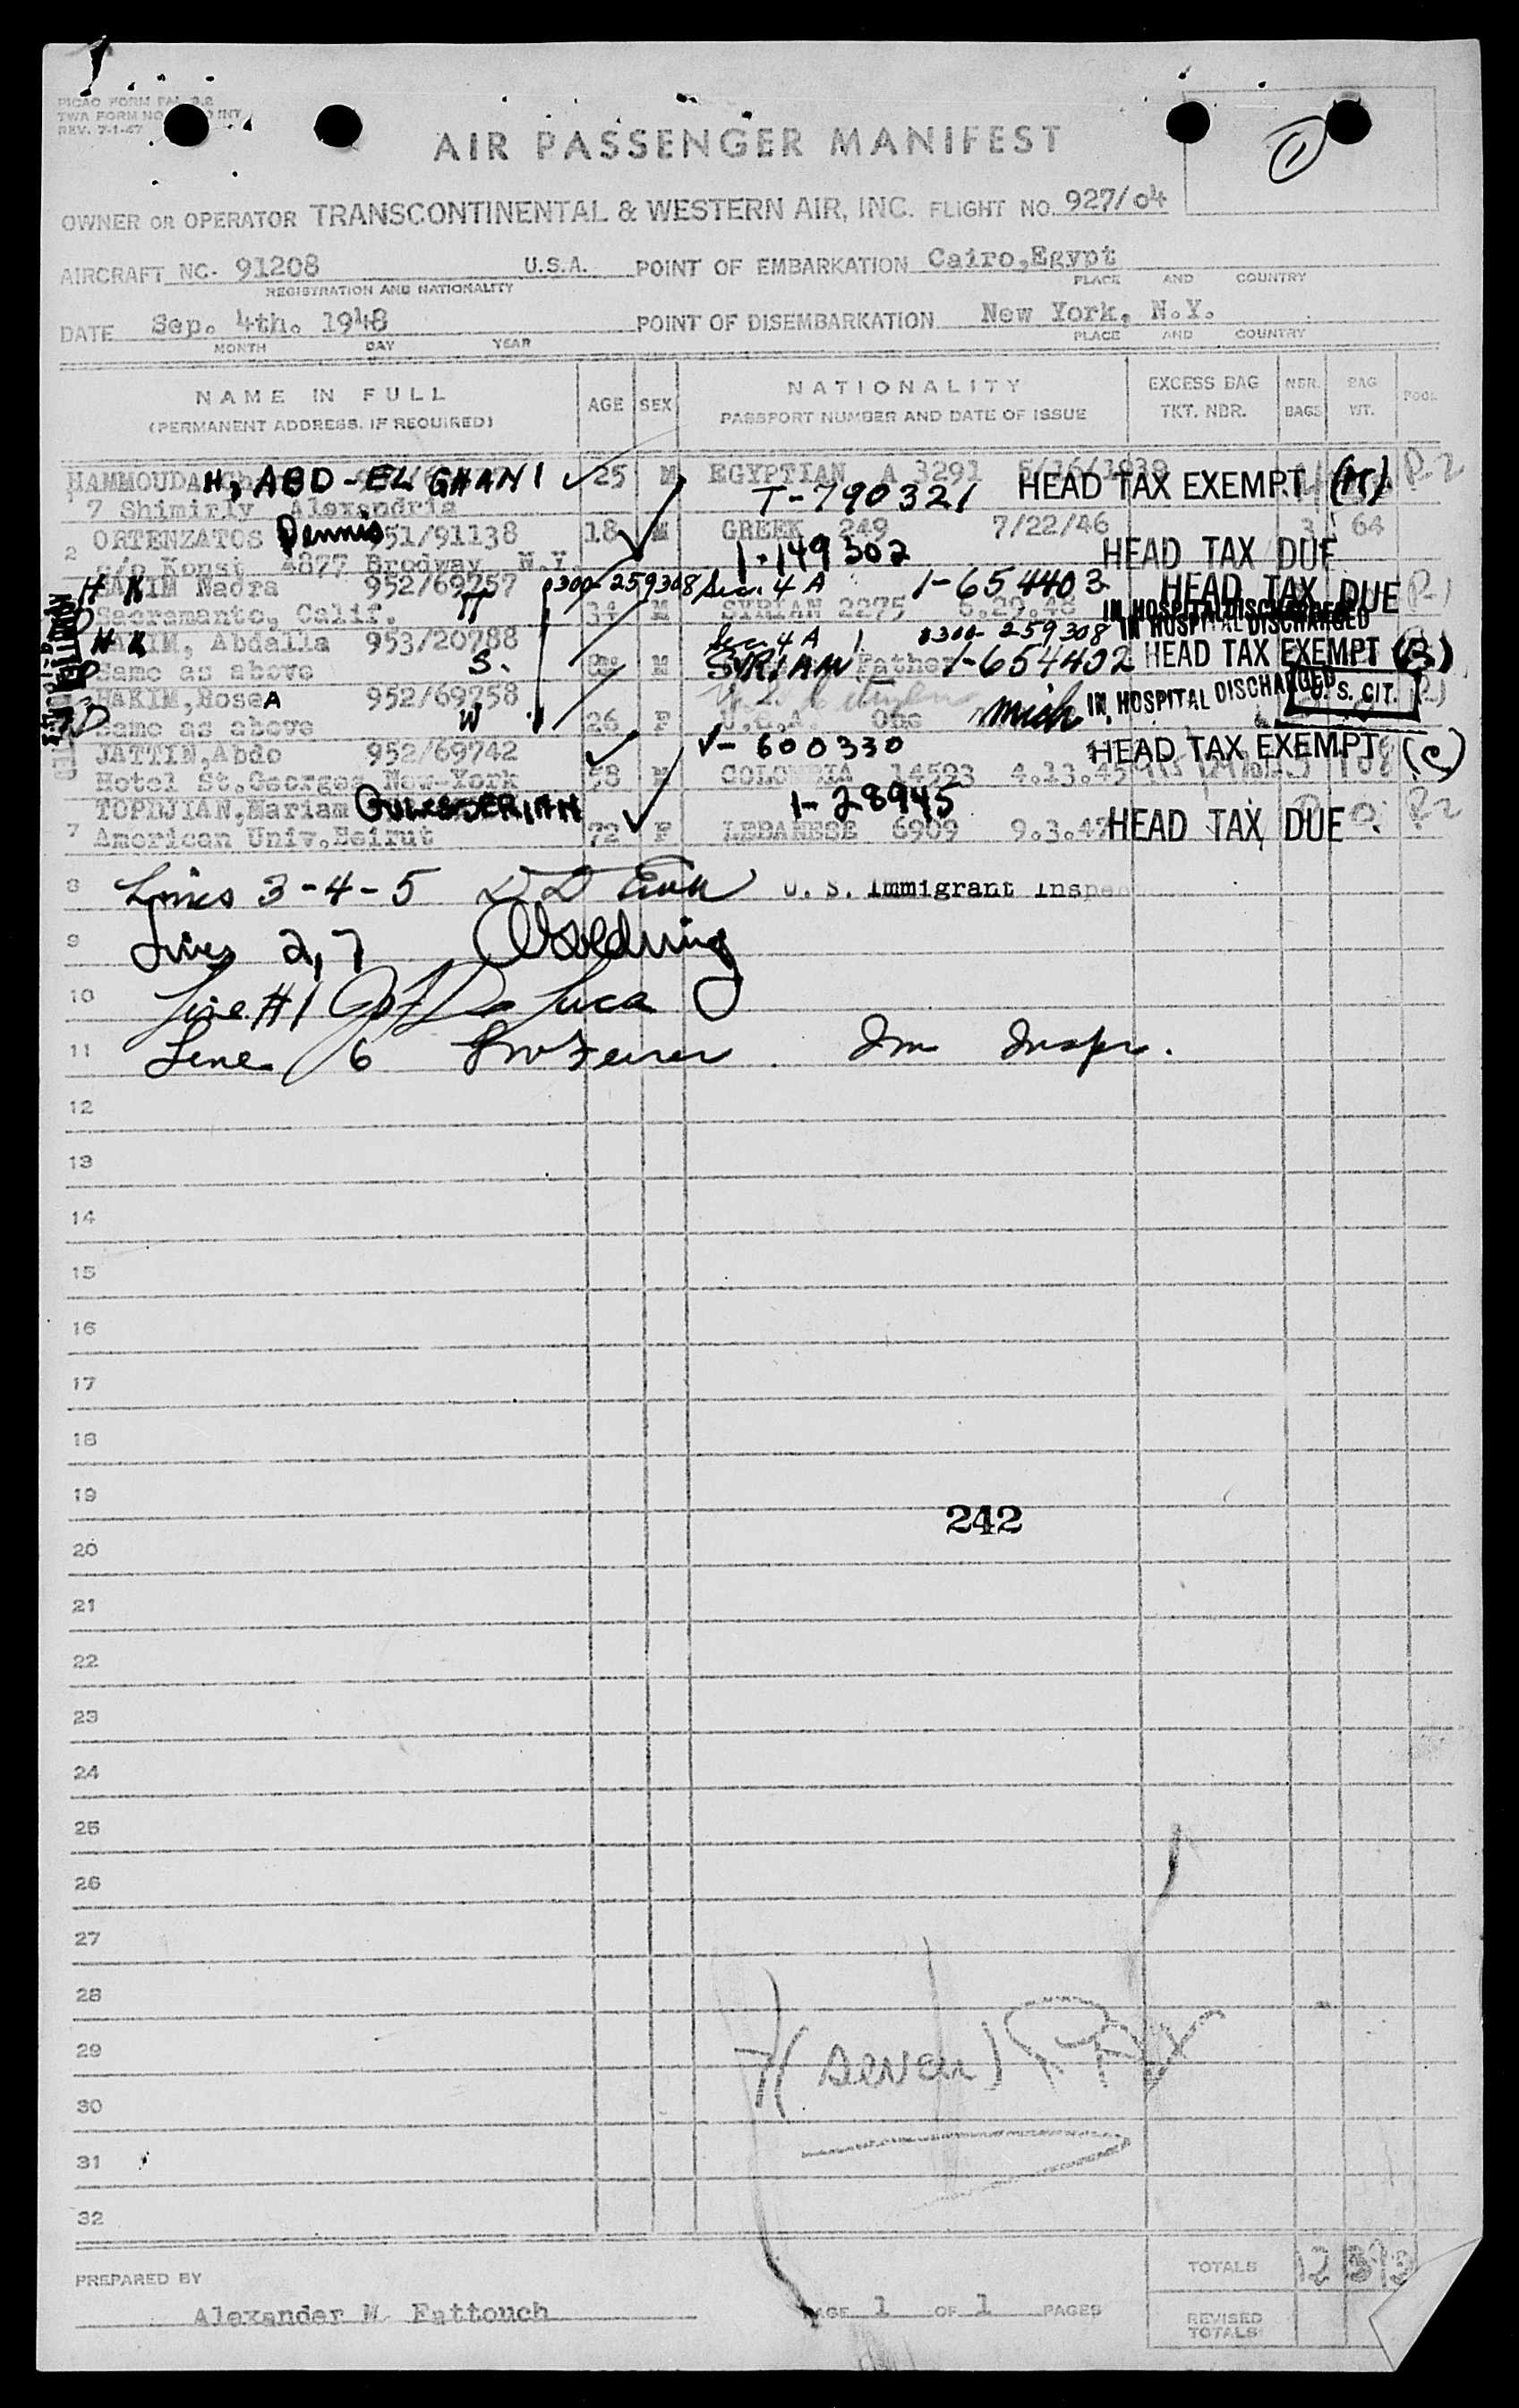 PICAO FORM
TWA FORM NO INT
REV. 7-1-47
AIR PASSENGER MANIFEST
1
OWNER OR OPERATOR TRANSCONTINENTAL & WESTERN AIR, INC. FLIGHT NO. 927/04
AIRCRAFT NC- 91208 U.S.A. POINT OF EMBARKATION Cairo,Egypt
REGISTRATION AND NATIONALITY PLACE AND COUNTRY
DATE Sep. 4th. 1948 POINT OF DISEMBARKATION New York, N.Y.
MONTH DAY YEAR PLACE AND COUNTRY
NAME IN FULL AGE SEX NATIONALITY EXCESS BAG NBR. BAG POOL
(PERMANENT ADDRESS, IF REQUIRED) PASSPORT NUMBER AND DATE OF ISSUE TKT. NBR. BAGS WT.
HAMMOUDA H, ABD-EL GHANI 25 M EGYPTIAN A 3291 HEAD TAX EXEMPT
7 Shimirly Alexandria T-790321
ORTENZATOS Dennis 951/91138 18 M GREEK 249 7/22/46 3 64
2 c/o Konst 4877 Brodway N.Y. 1-149302 HEAD TAX DUE
HAKIM Nadra 952/69757 0300-259308 Sec. 4 A 1-654403 HEAD TAX DUE
Sacramanto, Calif. 34 M SYRIAN 2275 5.29.48 IN HOSPITAL DISCHARGED
HAKIM, Abdalla 953/20788 Sec. 4 A 0300-259308 IN HOSPITAL DISCHARGED
Same as above S. M SYRIAN Father 1-654402 HEAD TAX EXEMPT
HAKIM, Rose A 952/69758 IN HOSPITAL DISCHARGED U. S. CIT.
Same as above W 26 F U.S.A.
JATTIN,Abdo 952/69742 V-600330 HEAD TAX EXEMPT (C)
Hotel St.Georges New-York 58 M COLOMBIA 14593 4.13.45
TOPDJIAN,Mariam 1-28945
7 American Univ.Beirut 72 F LEBANESE 6909 9.3.47 HEAD TAX DUE
8 Lines 3-4-5 U. S. Immigrant Inspe
9 Lines 2, 7
10 Line #1 De Luca
11 Line 6 Im Inspr.
12
13
14
15
16
17
18
19
242
20
21
22
23
24
25
26
27
28
29 7 (seven)
30
31
32
TOTALS 12
PREPARED BY
Alexander M Fattouch PAGE 1 OF 1 PAGES REVISED
TOTALS